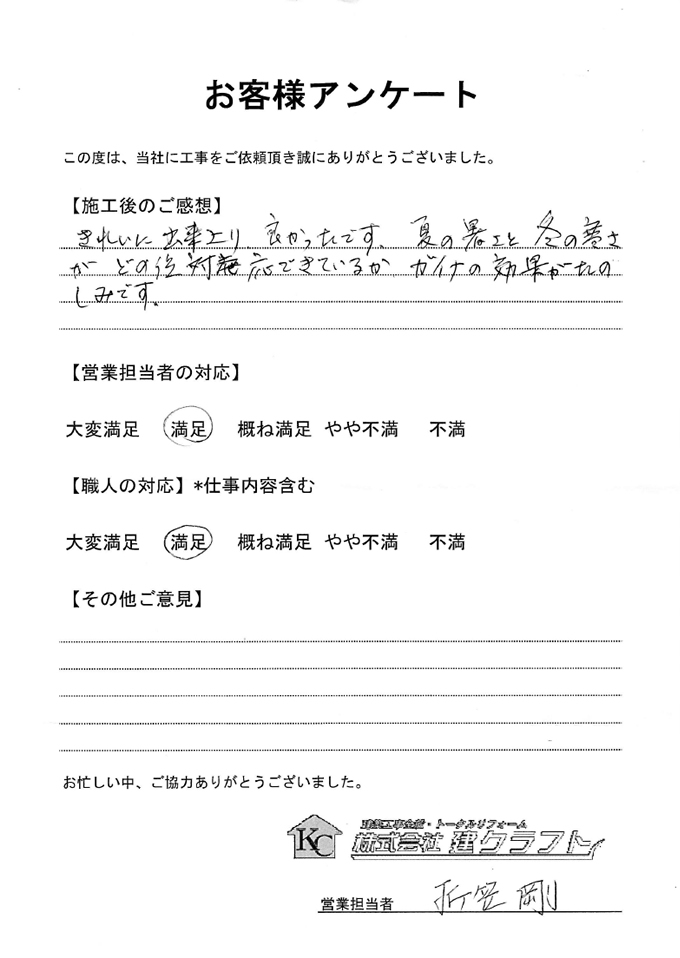 お客様アンケート
この度は、当社に工事をご依頼頂き誠にありがとうございました。
【施工後のご感想】
きれいに出来上り、良かったです。夏の暑さと冬の寒さ
がどの位対応できているかガイナの効果がたの
しみです。
【営業担当者の対応】
大変満足 満足 概ね満足 やや不満 不満
【職人の対応】*仕事内容含む
大変満足 満足 概ね満足 やや不満 不満
【その他ご意見】
お忙しい中、ご協力ありがとうございました。
KC
建築工事全般・トータルリフォーム
株式会社 建クラフト
営業担当者 折笠 剛